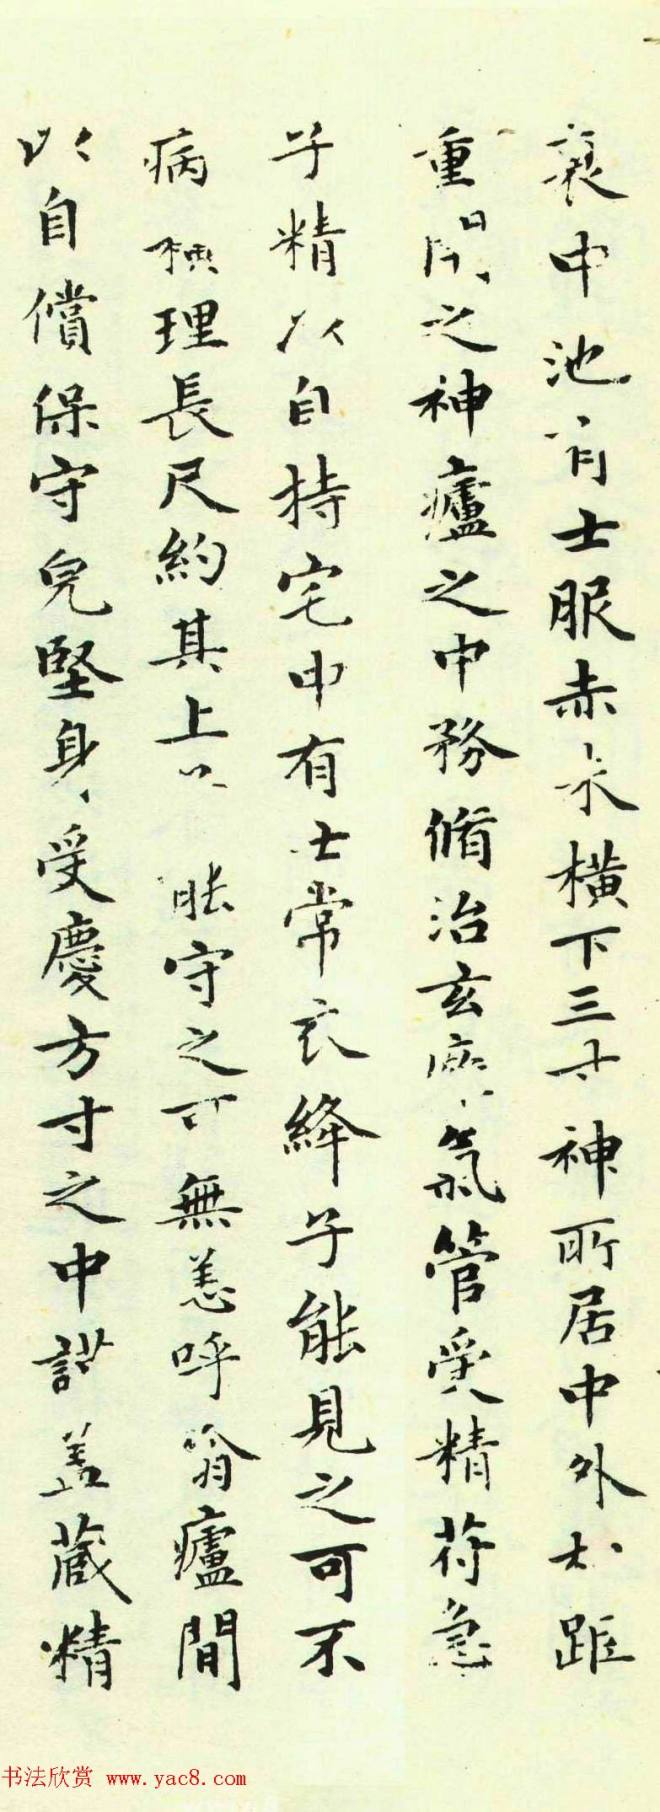 裏中池有士服赤衣橫下三寸神所居中外相距
重閉之神廬之中務脩治玄廱氣管受精符急
子精以自持宅中有士常衣絳子能見之可不
病橫理長尺約其上 能守之可無恙呼翕廬間
以自償保守皃堅身受慶方寸之中謹盖藏精
书法欣赏 www.yac8.com